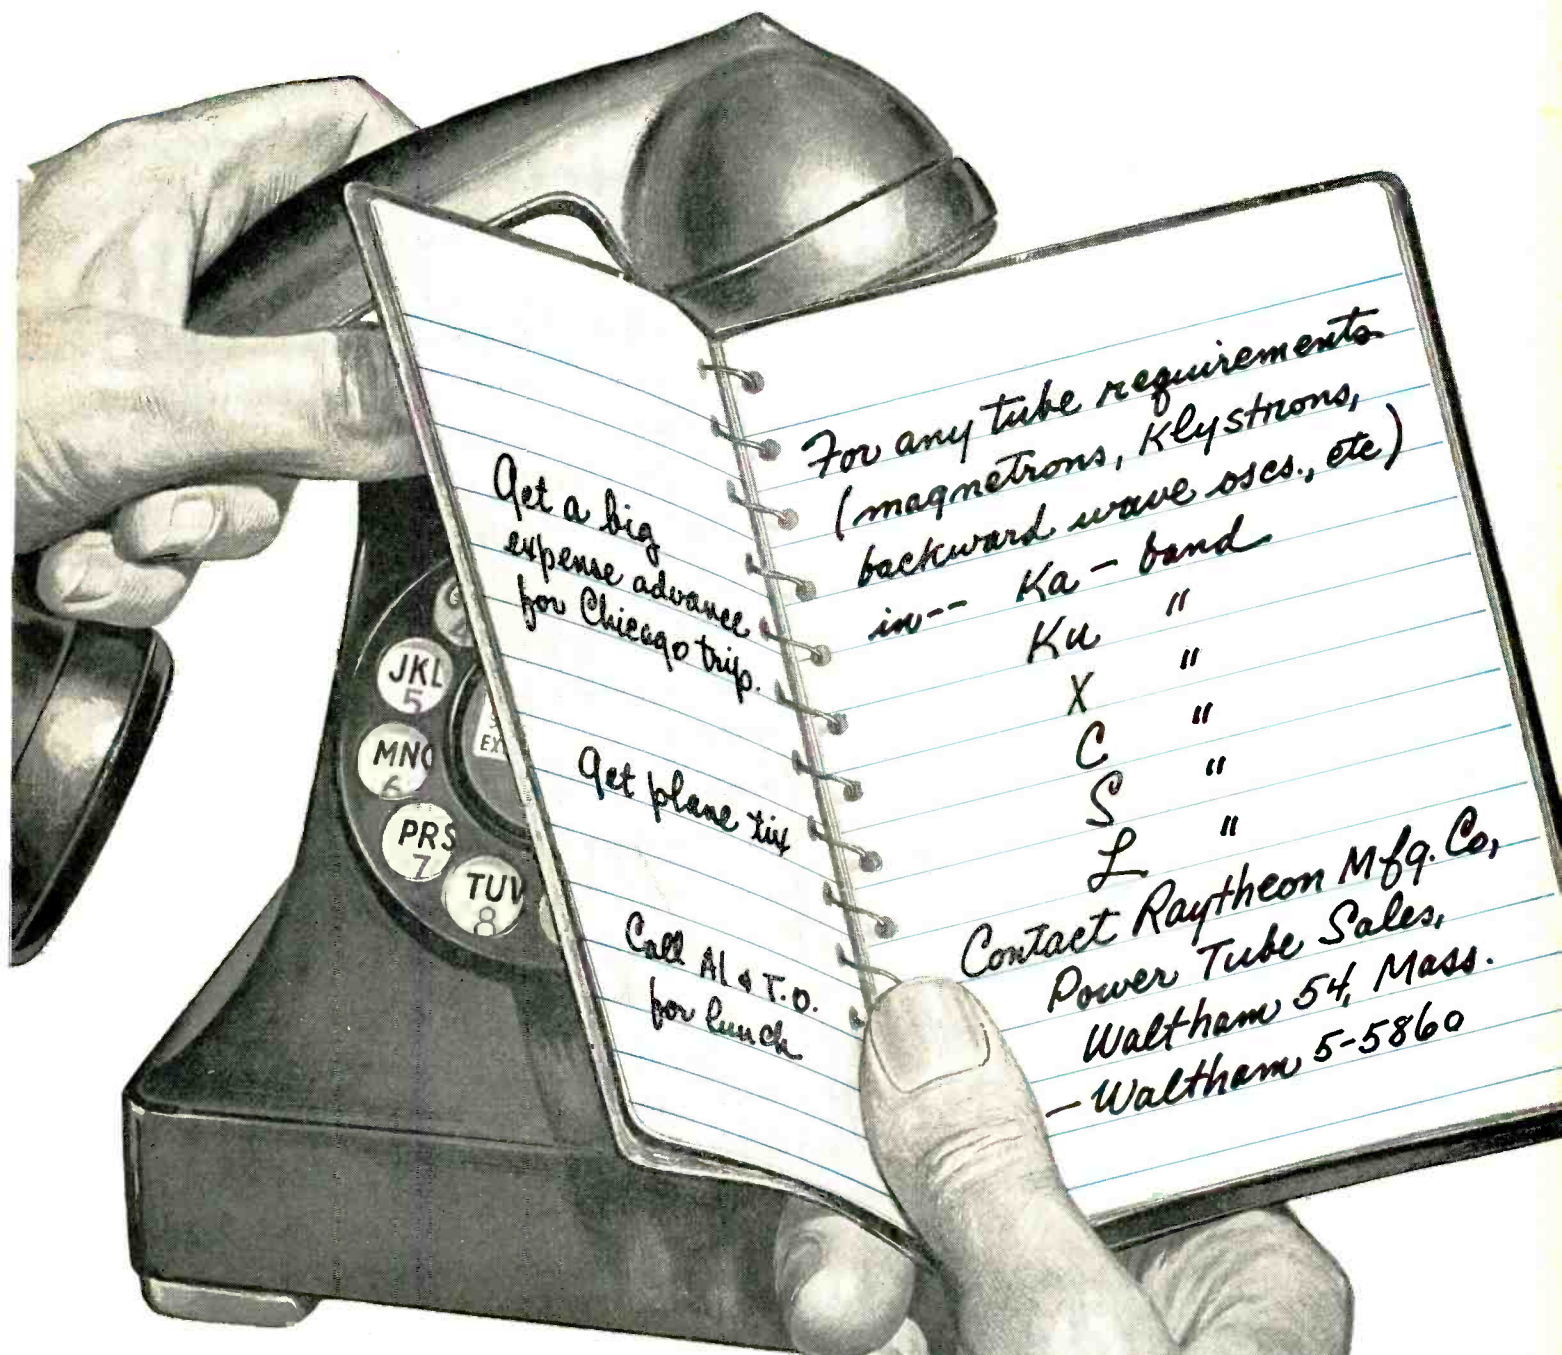 Get a big
expense advance
for Chicago trip.
Get plane tix
Call Al & T.O.
for lunch
For any tube requirements
(magnetrons, Klystrons,
backward wave oscs., etc)
in-- Ka - band
Ku "
X "
C "
S "
L "
Contact Raytheon Mfg. Co,
Power Tube Sales,
Waltham 54, Mass.
- Waltham 5-5860
JKL
5
MNO
6
PRS
7
TUV
8